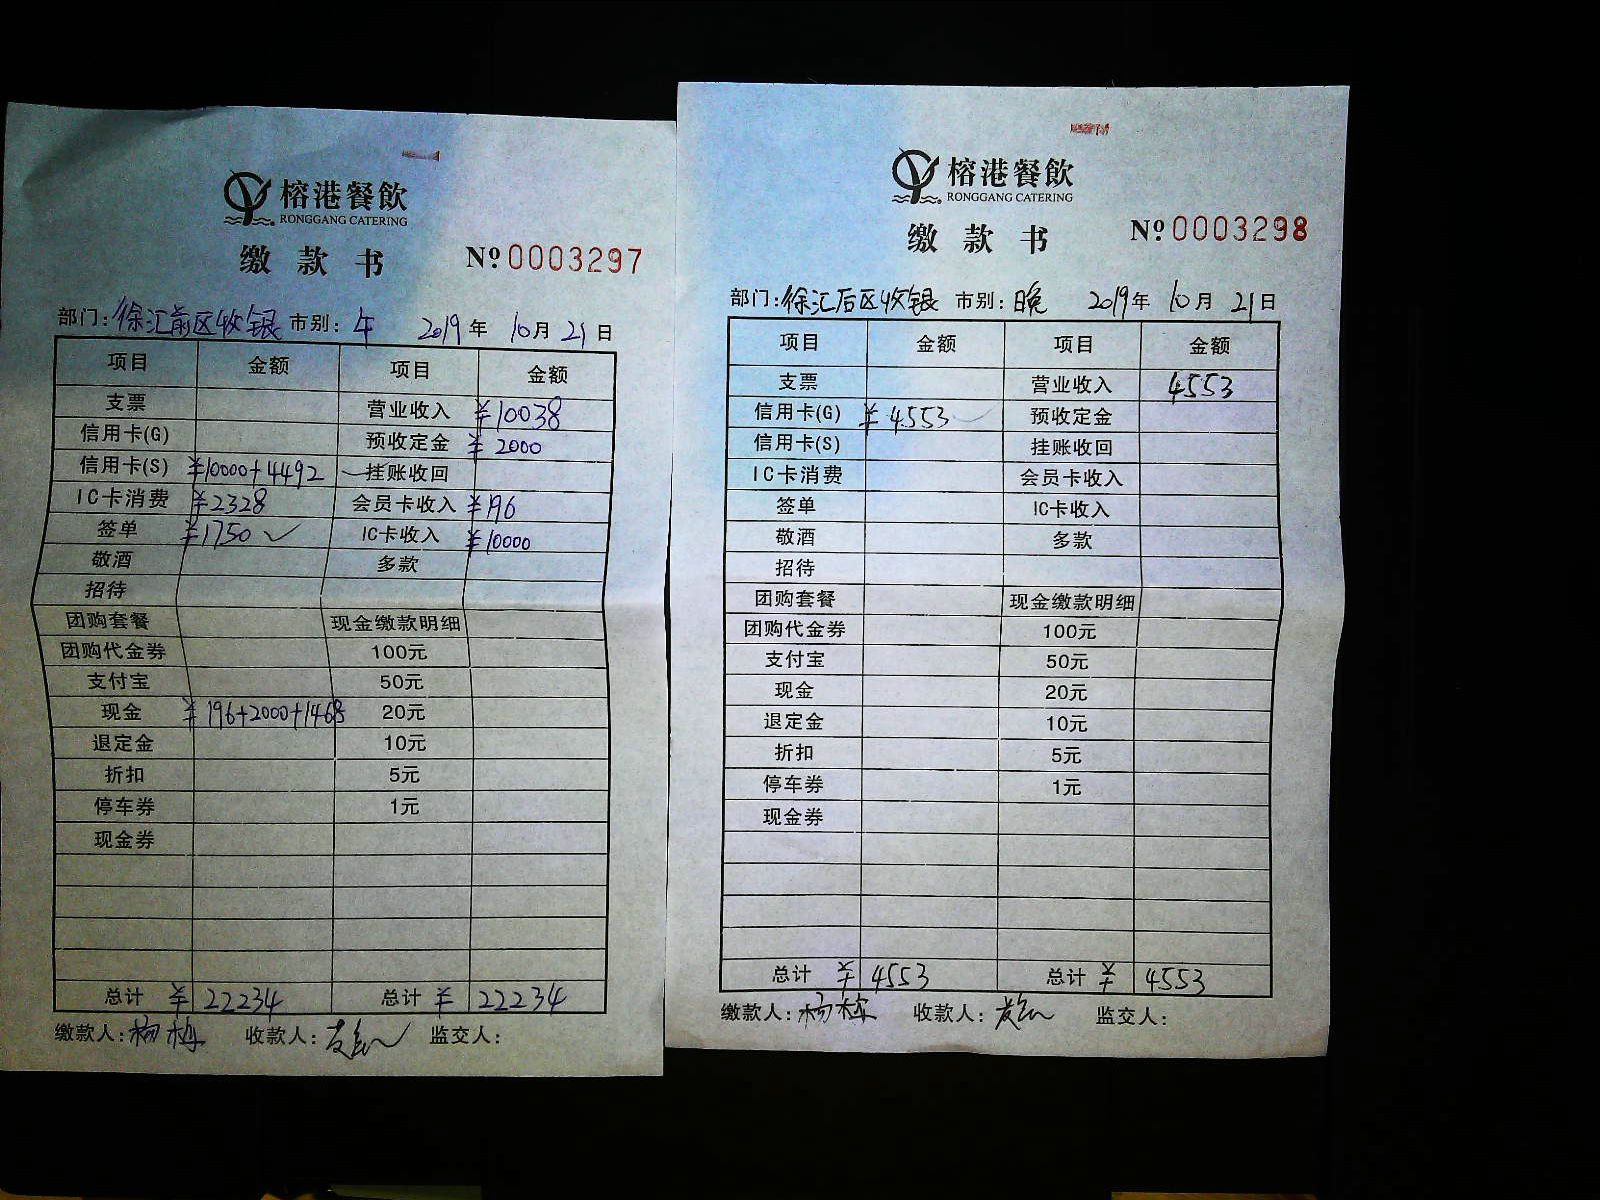 榕港餐飲
RONGGANG CATERING
缴款书
№0003297
部门:徐汇前区收银 市别:午 2019年10月21日
项目 金额 项目 金额
支票 营业收入 ¥10038
信用卡(G) 预收定金 ¥2000
信用卡(S) ¥10000+4492 挂账收回
IC卡消费 ¥2328 会员卡收入 ¥196
签单 ¥1750 ✓ IC卡收入 ¥10000
敬酒 多款
招待
团购套餐 现金缴款明细
团购代金券 100元
支付宝 50元
现金 ¥196+2000+1468 20元
退定金 10元
折扣 5元
停车券 1元
现金券
总计 ¥22234 总计 ¥22234
缴款人:杨栋 收款人: 监交人:
榕港餐飲
RONGGANG CATERING
缴款书
№0003298
部门:徐汇后区收银 市别:晚 2019年10月21日
项目 金额 项目 金额
支票 营业收入 4553
信用卡(G) ¥4553 预收定金
信用卡(S) 挂账收回
IC卡消费 会员卡收入
签单 IC卡收入
敬酒 多款
招待
团购套餐 现金缴款明细
团购代金券 100元
支付宝 50元
现金 20元
退定金 10元
折扣 5元
停车券 1元
现金券
总计 ¥4553 总计 ¥4553
缴款人:杨栋 收款人: 监交人: